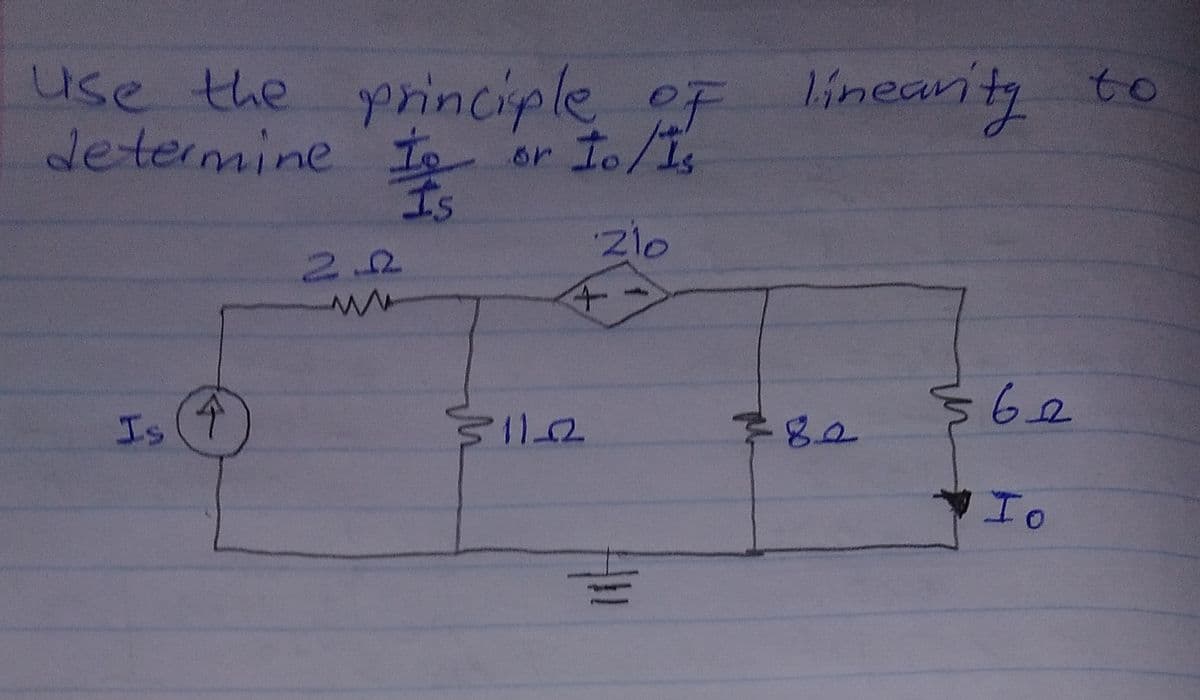 Use the principle of linearity to
determine Io/Is or Io/Is
2io
2Ω
+ -
Is
11Ω
8Ω
6Ω
Io